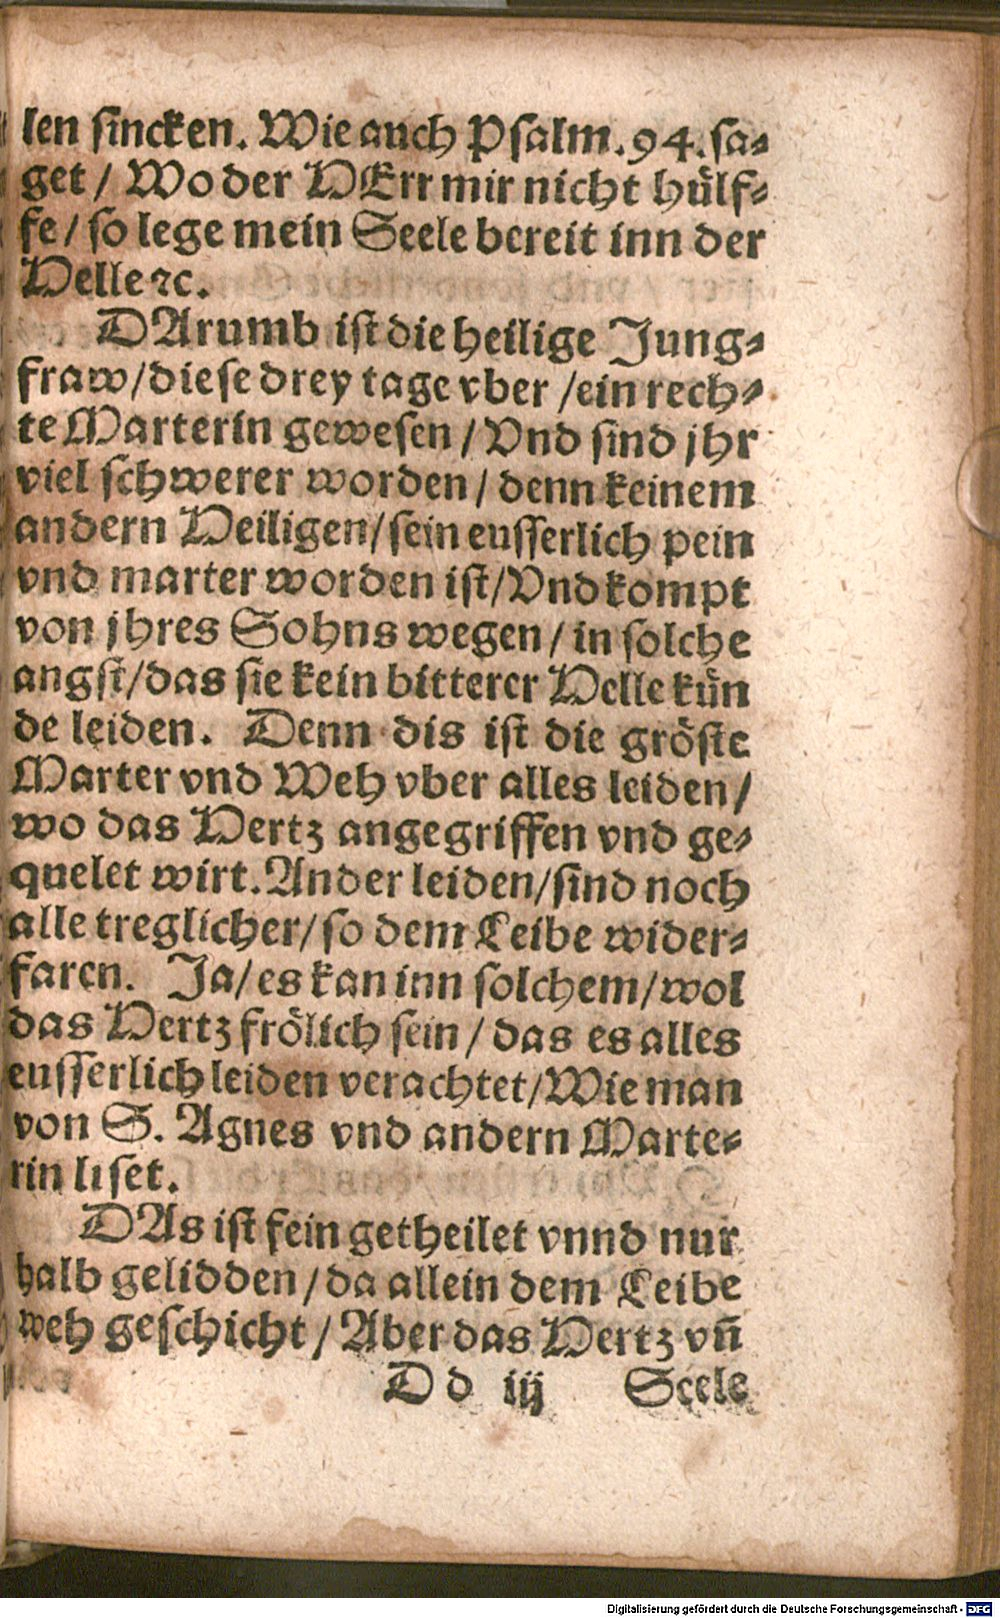 len sincken. Wie auch Psalm. 94. sa-
get / Wo der HErr mir nicht hülf-
fe / so lege mein Seele bereit inn der
Helle ꝛc.
DArumb ist die heilige Jung-
fraw / diese drey tage vber / ein rech-
te Marterin gewesen / Vnd sind jhr
viel schwerer worden / denn keinem
andern Heiligen / sein eusserlich pein
vnd marter worden ist / Vnd kompt
von jhres Sohns wegen / in solche
angst / das sie kein bitterer Helle kün
de leiden. Denn dis ist die gröste
Marter vnd Weh vber alles leiden /
wo das Hertz angegriffen vnd ge-
quelet wirt. Ander leiden / sind noch
alle treglicher / so dem Leibe wider-
faren. Ja / es kan inn solchem / wol
das Hertz frölich sein / das es alles
eusserlich leiden verachtet / Wie man
von S. Agnes vnd andern Marte-
rin liset.
DAs ist fein getheilet vnnd nur
halb gelidden / da allein dem Leibe
weh geschicht / Aber das Hertz vñ
D d iij Seele
Digitalisierung gefördert durch die Deutsche Forschungsgemeinschaft - DFG